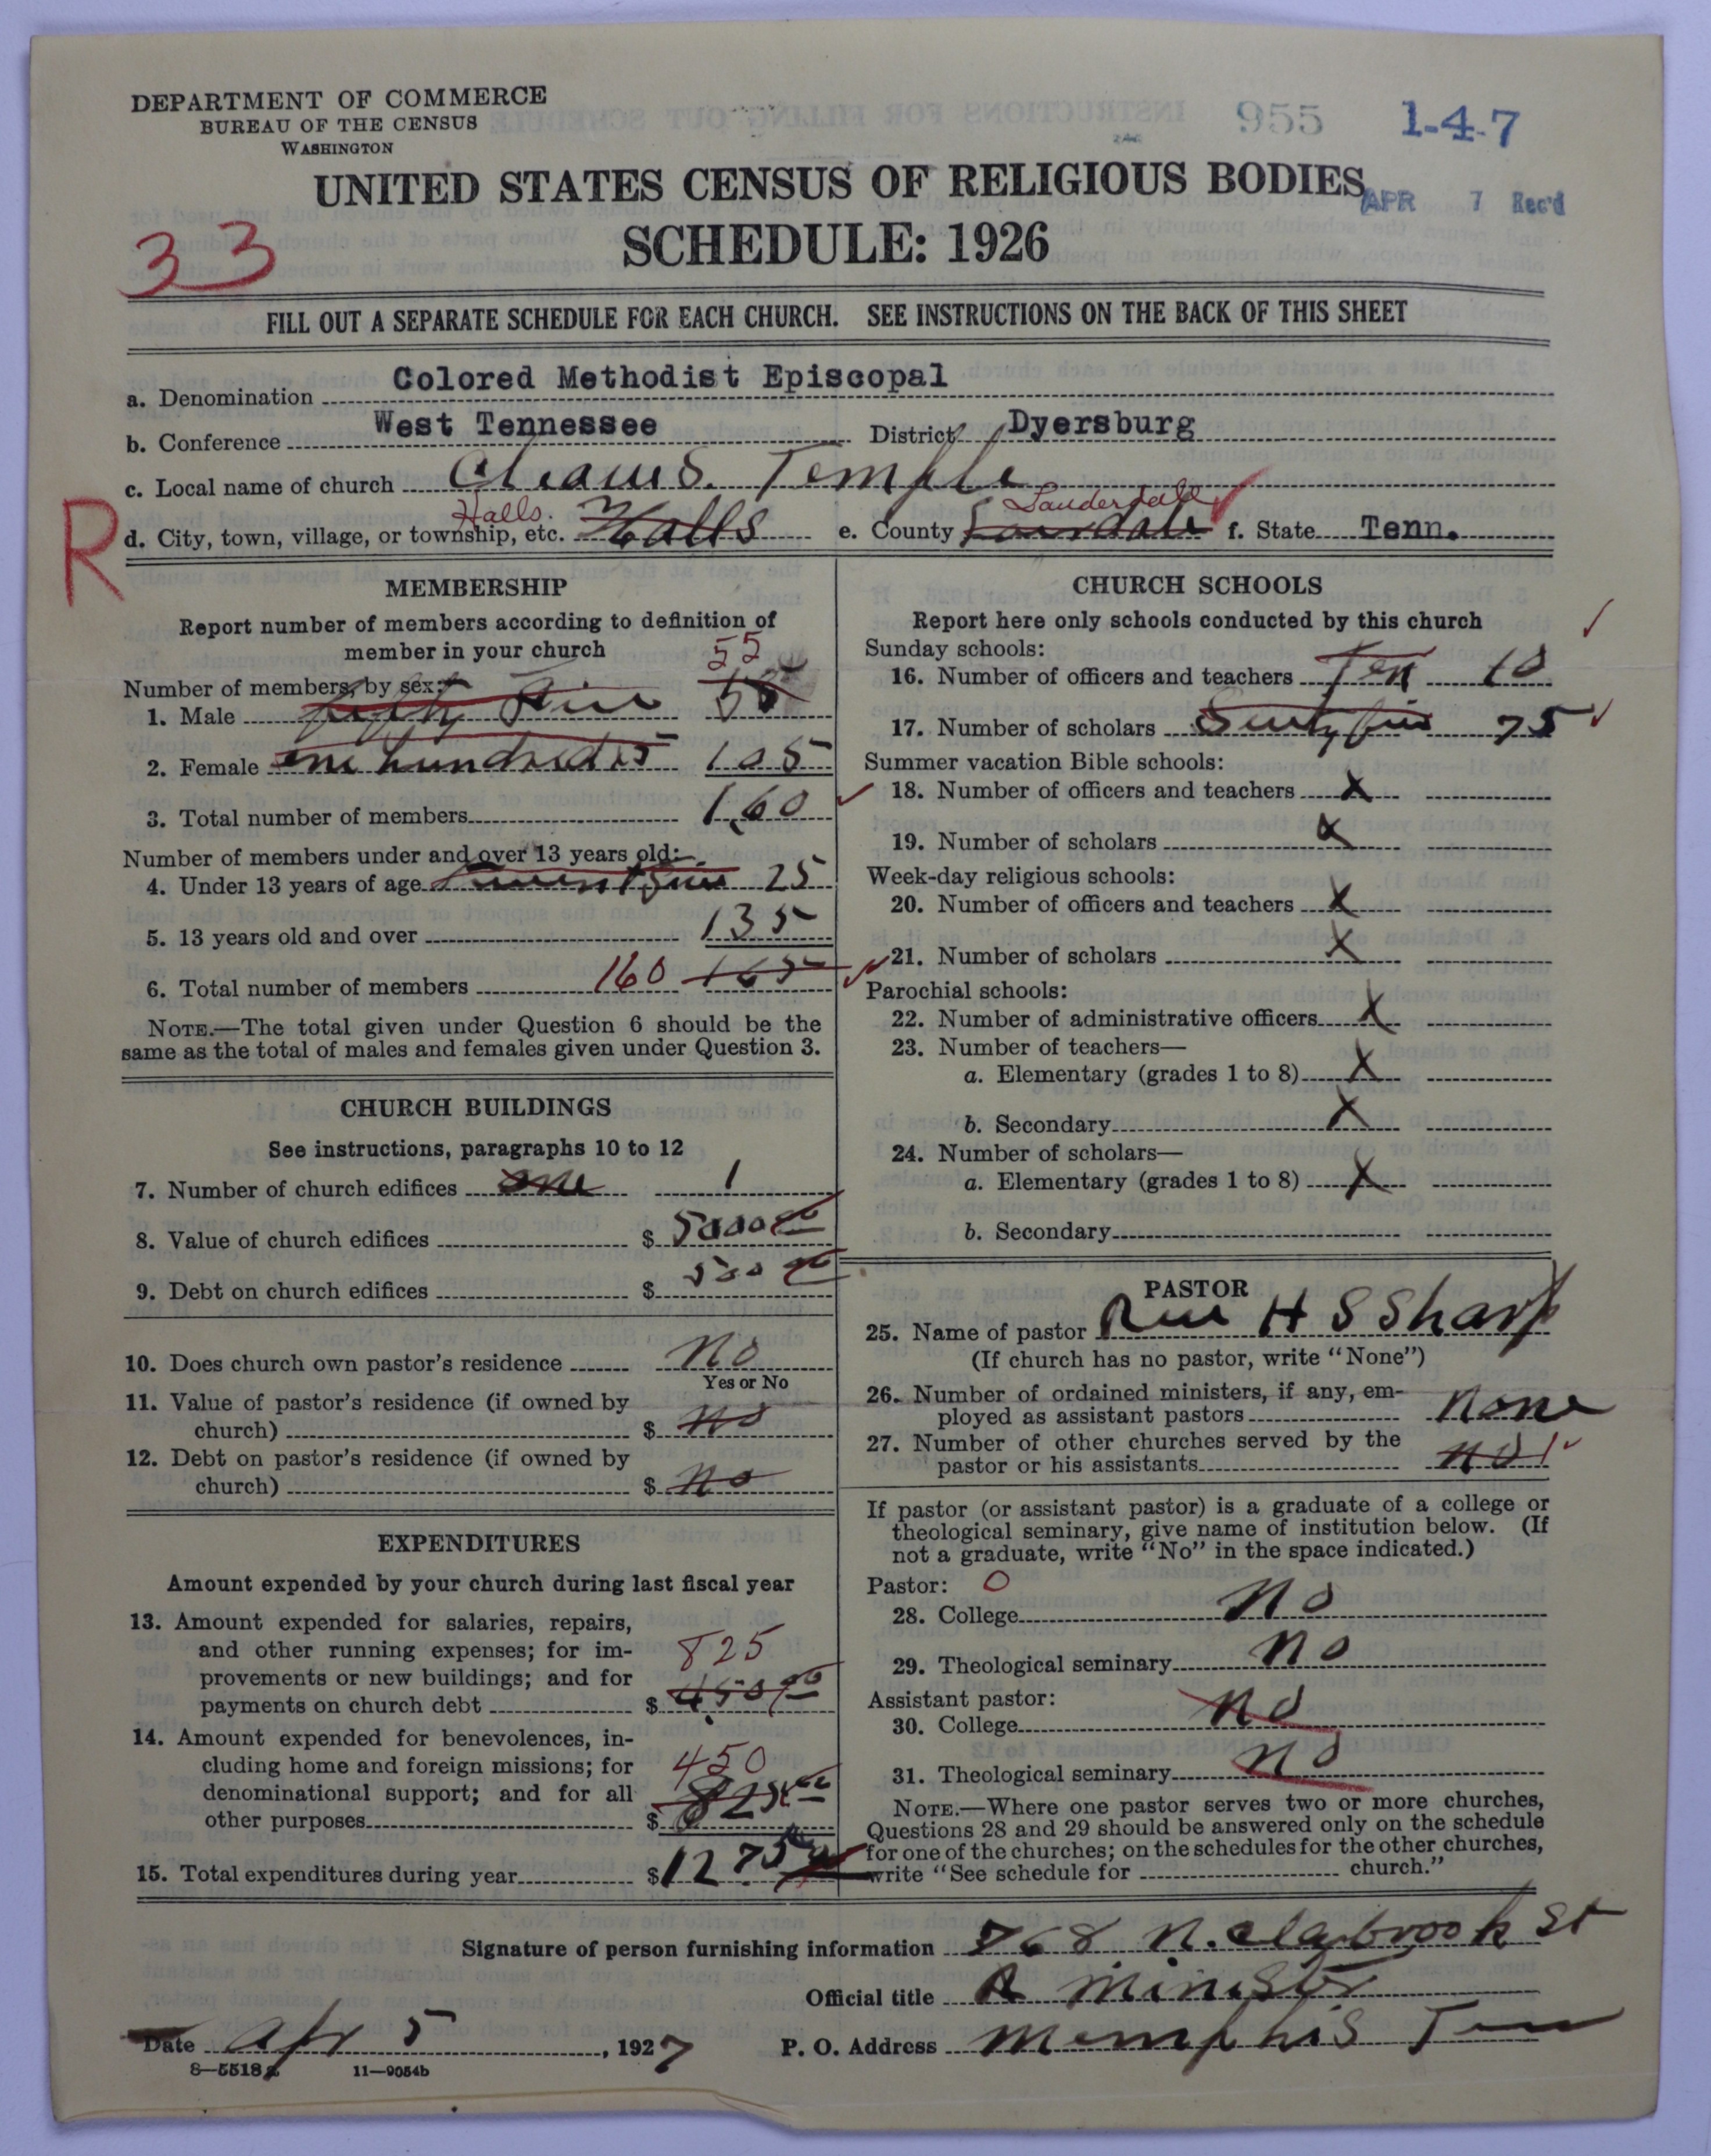 DEPARTMENT OF COMMERCE
BUREAU OF THE CENSUS
WASHINGTON
955 1-4-7
UNITED STATES CENSUS OF RELIGIOUS BODIES
APR 7 Rec'd
33
SCHEDULE: 1926
FILL OUT A SEPARATE SCHEDULE FOR EACH CHURCH. SEE INSTRUCTIONS ON THE BACK OF THIS SHEET
a. Denomination Colored Methodist Episcopal
b. Conference West Tennessee District Dyersburg
c. Local name of church Temple
R
Halls. Lauderdale
d. City, town, village, or township, etc. Halls e. County f. State Tenn.
MEMBERSHIP
Report number of members according to definition of
member in your church
55
Number of members, by sex:
1. Male fifty five 55
2. Female one hundred 5 105
3. Total number of members 160
Number of members under and over 13 years old:
4. Under 13 years of age 25
5. 13 years old and over 135
6. Total number of members 160 165
NOTE.—The total given under Question 6 should be the
same as the total of males and females given under Question 3.
CHURCH BUILDINGS
See instructions, paragraphs 10 to 12
7. Number of church edifices one 1
8. Value of church edifices $ 5000 00
9. Debt on church edifices $ 500 00
10. Does church own pastor's residence No
Yes or No
11. Value of pastor's residence (if owned by
church) $ no
12. Debt on pastor's residence (if owned by
church) $ no
EXPENDITURES
Amount expended by your church during last fiscal year
13. Amount expended for salaries, repairs,
and other running expenses; for im-
provements or new buildings; and for
825
payments on church debt $ 450 00
14. Amount expended for benevolences, in-
cluding home and foreign missions; for
450
denominational support; and for all
other purposes $ 825 00
15. Total expenditures during year $ 1275
CHURCH SCHOOLS
Report here only schools conducted by this church
Sunday schools:
16. Number of officers and teachers Ten 10
17. Number of scholars 75
Summer vacation Bible schools:
18. Number of officers and teachers X
19. Number of scholars X
Week-day religious schools:
20. Number of officers and teachers X
21. Number of scholars X
Parochial schools:
22. Number of administrative officers X
23. Number of teachers—
a. Elementary (grades 1 to 8) X
b. Secondary X
24. Number of scholars—
a. Elementary (grades 1 to 8) X
b. Secondary
PASTOR
25. Name of pastor Rev H S Sharp
(If church has no pastor, write "None")
26. Number of ordained ministers, if any, em-
ployed as assistant pastors none
27. Number of other churches served by the
pastor or his assistants no 1
If pastor (or assistant pastor) is a graduate of a college or
theological seminary, give name of institution below. (If
not a graduate, write "No" in the space indicated.)
Pastor: 0
28. College no
29. Theological seminary no
Assistant pastor:
30. College no
31. Theological seminary no
NOTE.—Where one pastor serves two or more churches,
Questions 28 and 29 should be answered only on the schedule
for one of the churches; on the schedules for the other churches,
write "See schedule for church."
Signature of person furnishing information 768 N. Claybrook St
Official title A minister
Date Apr 5, 1927 P. O. Address Memphis Tenn
8—5518 11—9054b